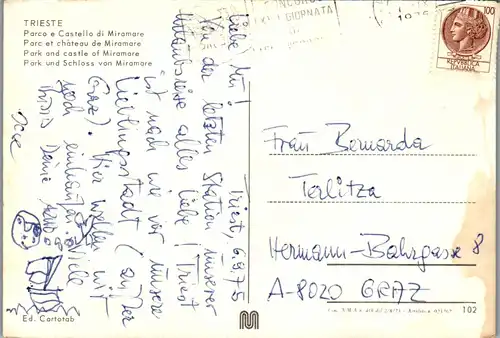 TRIESTE
Parco e Castello di Miramare
Parc et château de Miramare
Park and castle of Miramare
Park und Schloss von Miramare
GIORNATA
100
REPUBBLICA
ITALIANA
Triest, 6.9.75
Liebe
Von der letzten Station unserer
Urlaubsreise alles Liebe! Triest
ist nach wie vor unsere
Lieblingsstadt (außer
Graz). Hier wollen wir
noch einkaufen. Viele
Deine
Frau Bernarda
Terlitza
Hermann-Bahrgasse 8
A-8020 GRAZ
Ed. Cartotab
102